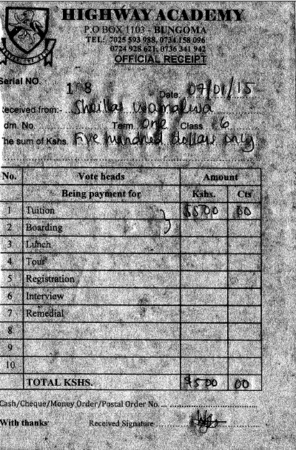 HIGHWAY ACADEMY
P.O BOX 1103 - BUNGOMA
TEL: 0725 593 988, 0734 158 096
0724 928 621, 0736 341 942
OFFICIAL RECEIPT
Serial NO. 198 Date: 07/01/15
Received from:- Sheillah
dm. No. Term One Class 6
he sum of Kshs. Five hundred dollar only
No. Vote heads Amount
Being payment for Kshs. Cts
1 Tuition $500 00
2 Boarding
3 Lunch
4 Tour
5 Registration
6 Interview
7 Remedial
8
9
10
TOTAL KSHS. $500 00
Cash/Cheque/Money Order/Postal Order No.
With thanks Received Signature